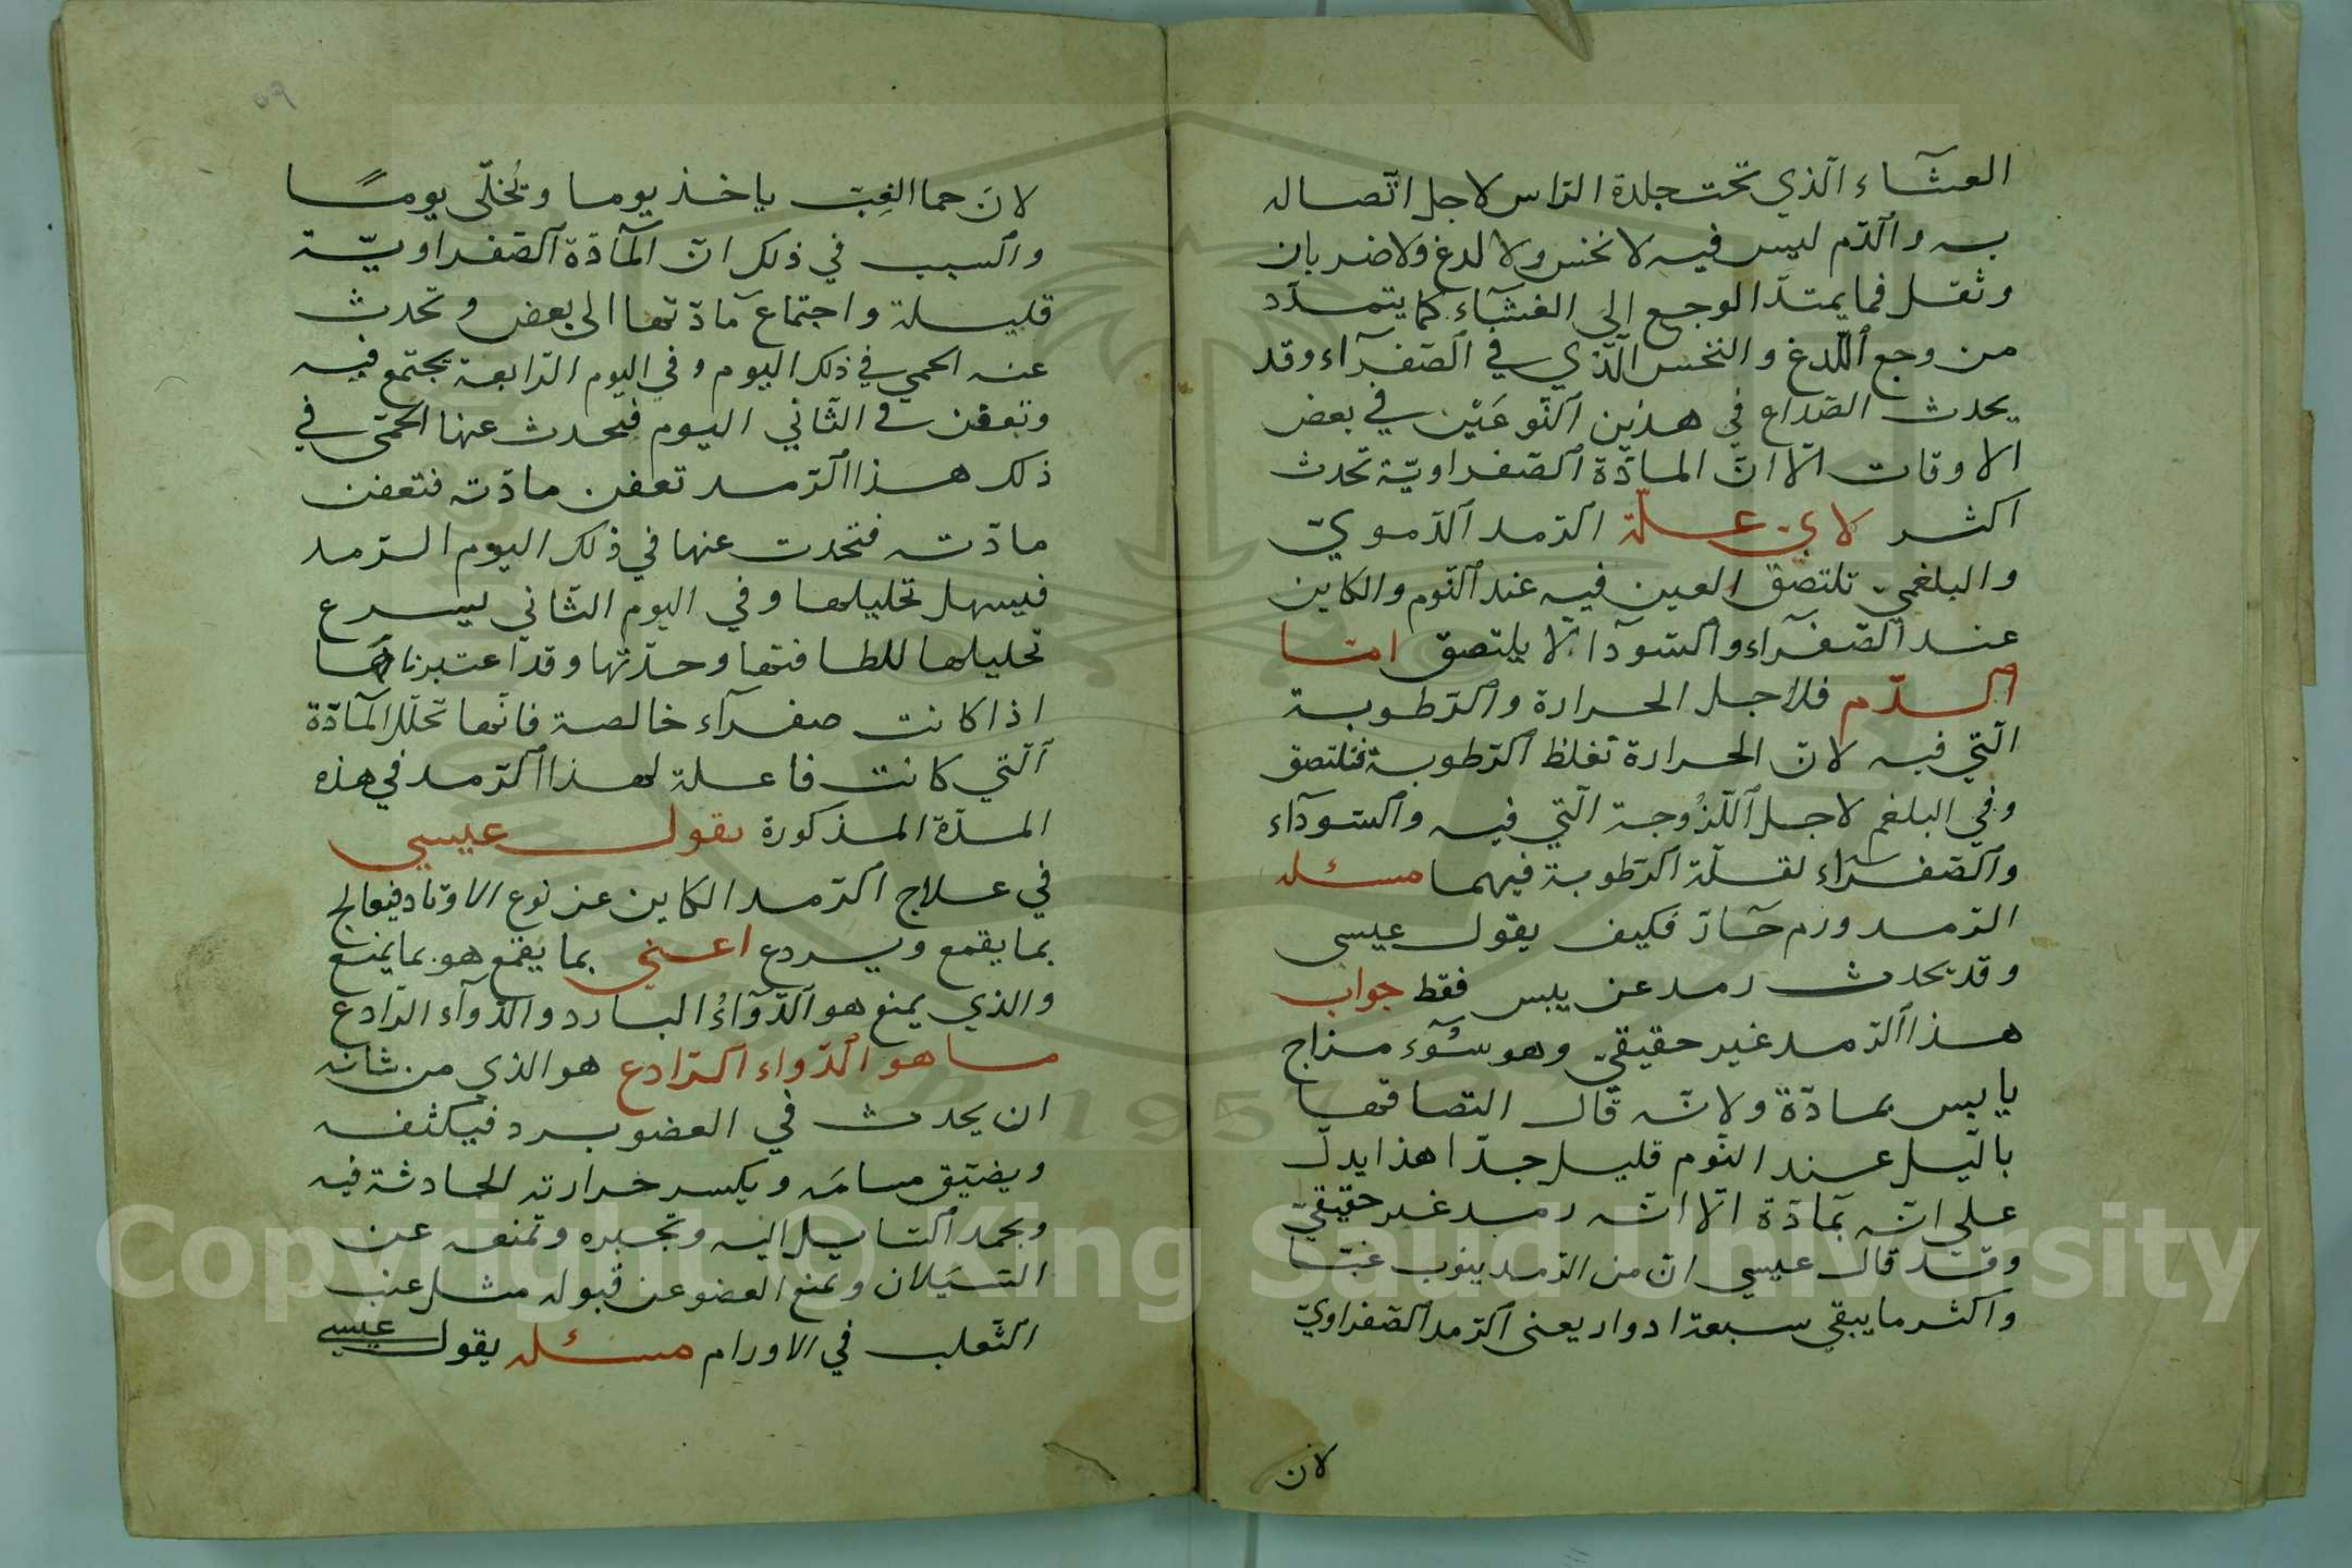 العشاء الذي تحت جلدة الراس لاجل اتصاله
به والدم ليس فيه لا نخس ولا لدغ ولا ضربان
وثقل فما يمتد الوجع الى الغشاء كما يتمدد
من وجع اللدغ والنخس الذي في الصفرآء وقد
يحدث الصداع في هذين النوعين في بعض
الاوقات الا ان المادة الصفراوية تحدث
اكثر لاي علة الرمد الدموي
والبلغمي تلتصق العين فيه عند النوم والكاين
عند الصفرآء والسودا لا يلتصق اما
الدم فلاجل الحرارة والرطوبة
التي فيه لان الحرارة تغلظ الرطوبة فتلتصق
وفي البلغم لاجل اللزوجة التي فيه والسودآء
والصفرآء لقلة الرطوبة فيهما مسئله
الرمد ورم حار فكيف يقول عيسى
وقد يحدث رمد عن يبس فقط جواب
هذا الرمد غير حقيقي وهو سوء مزاج
يابس بمادة ولانه قال التصاقها
باليل عند النوم قليل جدا هذا يدل
على انه بمادة الا انه رمد غير حقيقي
وقد قال عيسى ان من الرمد ينوب غبا
واكثر ما يبقى سبعة ادوار يعنى الرمد الصفراوي
لان
لان حما الغب ياخذ يوما وتخلى يومًا
والسبب في ذلك ان المادة الصفراوية
قليلة واجتماع مادتها الى بعض وتحدث
عنه الحمى في ذلك اليوم وفي اليوم الرابعة تجتمع فيه
وتعفن في الثاني اليوم فيحدث عنها الحمى في
ذلك هذا الرمد تعفن مادته فتعفن
مادته فتحدث عنها في ذلك اليوم الرمد
فيسهل تحليلها وفي اليوم الثاني يسرع
تحليلها للطافتها وحدتها وقد اعتبرناها
اذا كانت صفرآء خالصة فانها تحلل المادة
التي كانت فاعلة لهذا الرمد في هذه
المدة المذكورة يقول عيسى
في علاج الرمد الكاين عن نوع الاوتاد فيعالج
بما يقمع ويردع اعني بما يقمع هو بما يمنع
والذي يمنع هو الدوآء البارد والدوآء الرادع
ما هو الدواء الرادع هو الذي من شانه
ان يحدث في العضو برد فيكثفه
ويضيق مسامه ويكسر حرارته الحادثة فيه
ويجمد السايل اليه وتجبره وتمنعه عن
السيلان وتمنع العضو عن قبوله مثل عنب
الثعلب في الاورام مسئله يقول عيسى